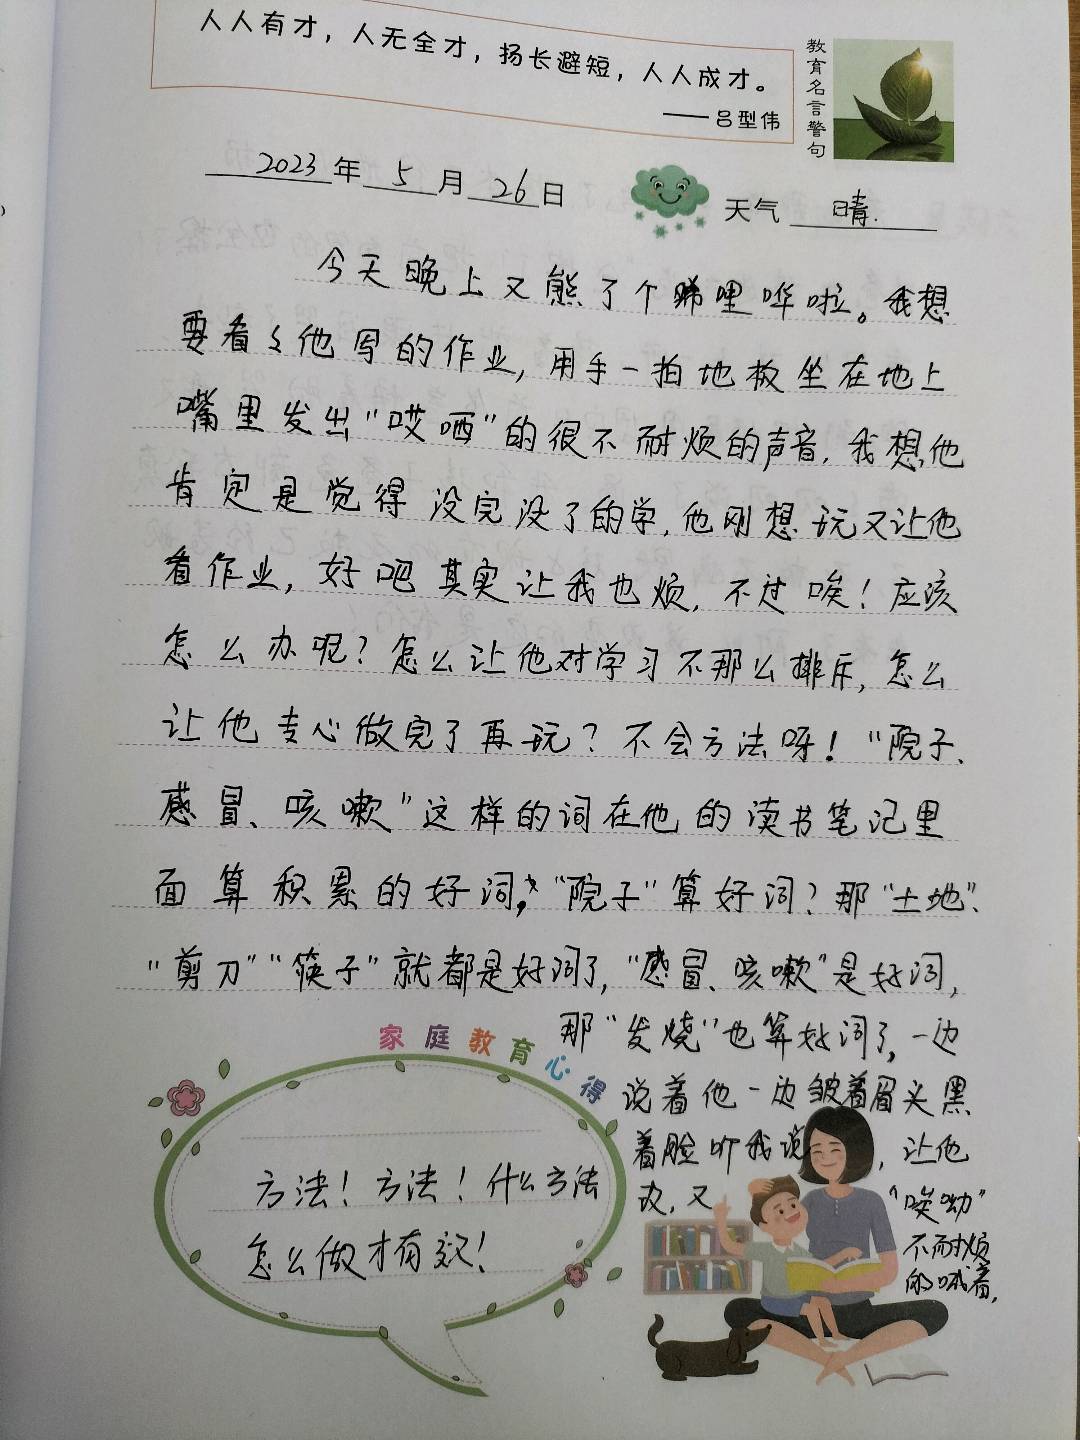 人人有才，人无全才，扬长避短，人人成才。
——吕型伟
教育名言警句
2023年5月26日 天气 晴.
今天晚上又熊了个唏哩哗啦。我想
要看看他写的作业，用手一拍地板坐在地上
嘴里发出“哎哂”的很不耐烦的声音，我想他
肯定是觉得没完没了的学，他刚想玩又让他
看作业，好吧其实让我也烦，不过唉！应该
怎么办呢？怎么让他对学习不那么排斥，怎么
让他专心做完了再玩？不会方法呀！“院子、
感冒、咳嗽”这样的词在他的读书笔记里
面算积累的好词，“院子”算好词？那“土地”、
“剪刀”“筷子”就都是好词了，“感冒、咳嗽”是好词，
那“发烧”也算好词了，一边
说着他一边皱着眉头黑
着脸听我说，让他
改，又“唉呦”
不耐烦
的喊着，
家庭教育心得
方法！方法！什么方法
怎么做才有效！